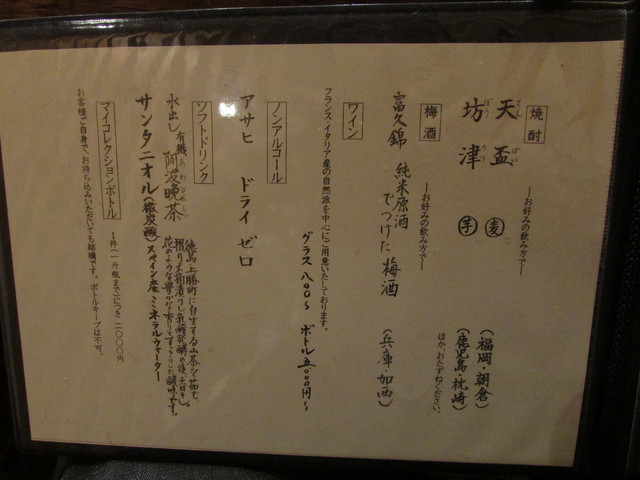 焼酎
―お好みの飲み方で―
天盃 てんぱい 麦 (福岡・朝倉)
坊津 ぼうのつ 芋 (鹿児島・枕崎)
ほか、おたずねください。
梅酒
―お好みの飲み方で―
富久錦 純米原酒でつけた 梅酒 (兵庫・加西)
ワイン
フランス、イタリア産の自然派を中心にご用意いたしております。
グラス 八〇〇~ ボトル 五、〇〇〇円~
ノンアルコール
アサヒ ドライ ゼロ
ソフトドリンク
水出し 有機 阿波晩茶 あわばんちゃ
徳島・上勝町に自生する山茶を茹で、
擦り、木桶漬けし乳酸発酵の後、天日干し。
花のような豊かな香りとすっきりした酸味です。
サンタニオル(微炭酸) スペイン産ミネラルウォーター
マイコレクションボトル
お客様ご自身で、お持ち込みいただいても結構です。ボトルキープは不可。
1件(一升瓶まで)につき 二〇〇〇円